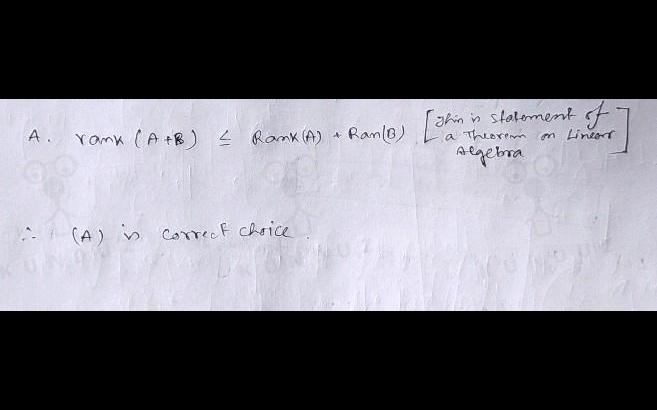 A. rank (A+B) ≤ Rank(A) + Ran(B) [This is statement of
a Theorem on Linear
Algebra]
∴ (A) is correct choice.